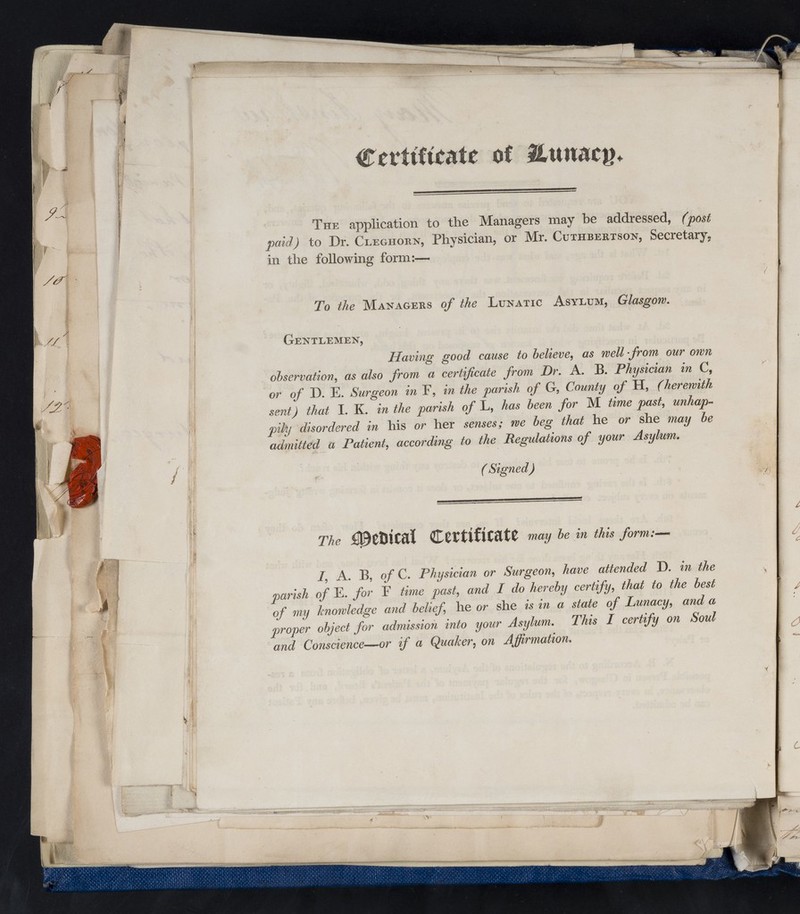 Certificate of Lunacy.
THE application to the Managers may be addressed, (post
paid) to Dr. CLEGHORN, Physician, or Mr. CUTHBERTSON, Secretary,
in the following form:—
To the MANAGERS of the LUNATIC ASYLUM, Glasgow.
GENTLEMEN,
Having good cause to believe, as well from our own
observation, as also from a certificate from Dr. A. B. Physician in C,
or of D. E. Surgeon in F, in the parish of G, County of H, (herewith
sent) that I. K. in the parish of L, has been for M time past, unhap-
pily disordered in his or her senses; we beg that he or she may be
admitted a Patient, according to the Regulations of your Asylum.
(Signed)
The Medical Certificate may be in this form:—
I, A. B, of C. Physician or Surgeon, have attended D. in the
parish of E. for F time past, and I do hereby certify, that to the best
of my knowledge and belief, he or she is in a state of Lunacy, and a
proper object for admission into your Asylum. This I certify on Soul
and Conscience—or if a Quaker, on Affirmation.
9
10
11
12